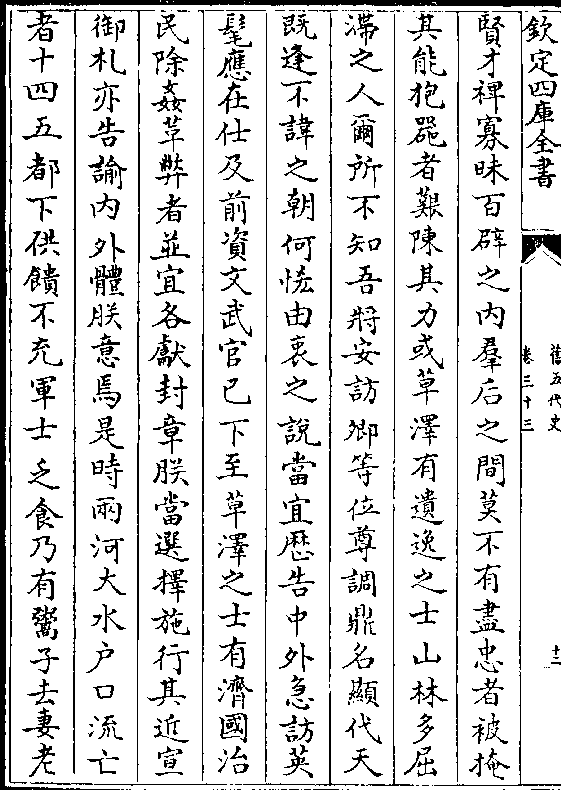 欽定四庫全書
舊五代史
卷三十三
十二
賢才裨寡昧百辟之内羣后之間莫不有盡忠者被掩
其能抱器者艱陳其力或草澤有遺逸之士山林多屈
滯之人爾所不知吾將安訪卿等位尊調鼎名顯代天
既逢不諱之朝何恡由衷之說當宜歴告中外急訪英
髦應在仕及前資文武官已下至草澤之士有濟國治
民除姦革弊者並宜各獻封章朕當選擇施行其近宣
御札亦告諭内外體朕意焉是時兩河大水户口流亡
者十四五都下供饋不充軍士乏食乃有鬻子去妻老